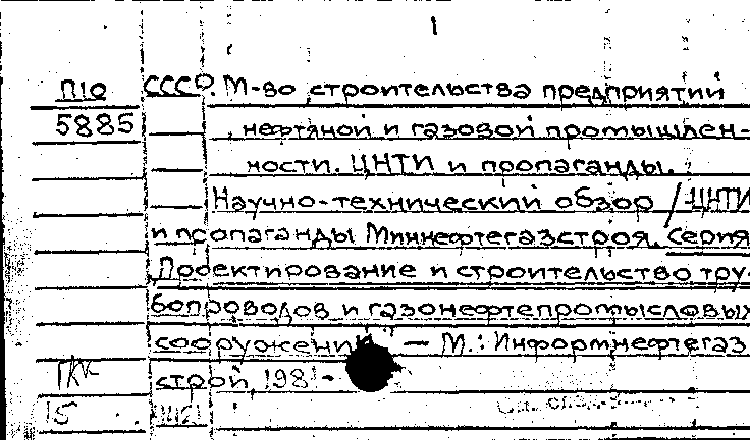 1
П10 СССР. М-во строительства предприятий
5885 нефтяной и газовой промышлен-
ности. ЦНТИ и пропаганды.
Научно-технический обзор / ЦНТИ
и пропаганды Миннефтегазстроя. Серия
"Проектирование и строительство тру-
бопроводов и газонефтепромысловых
сооружений" — М.: Информнефтегаз
строй, 1981-
15